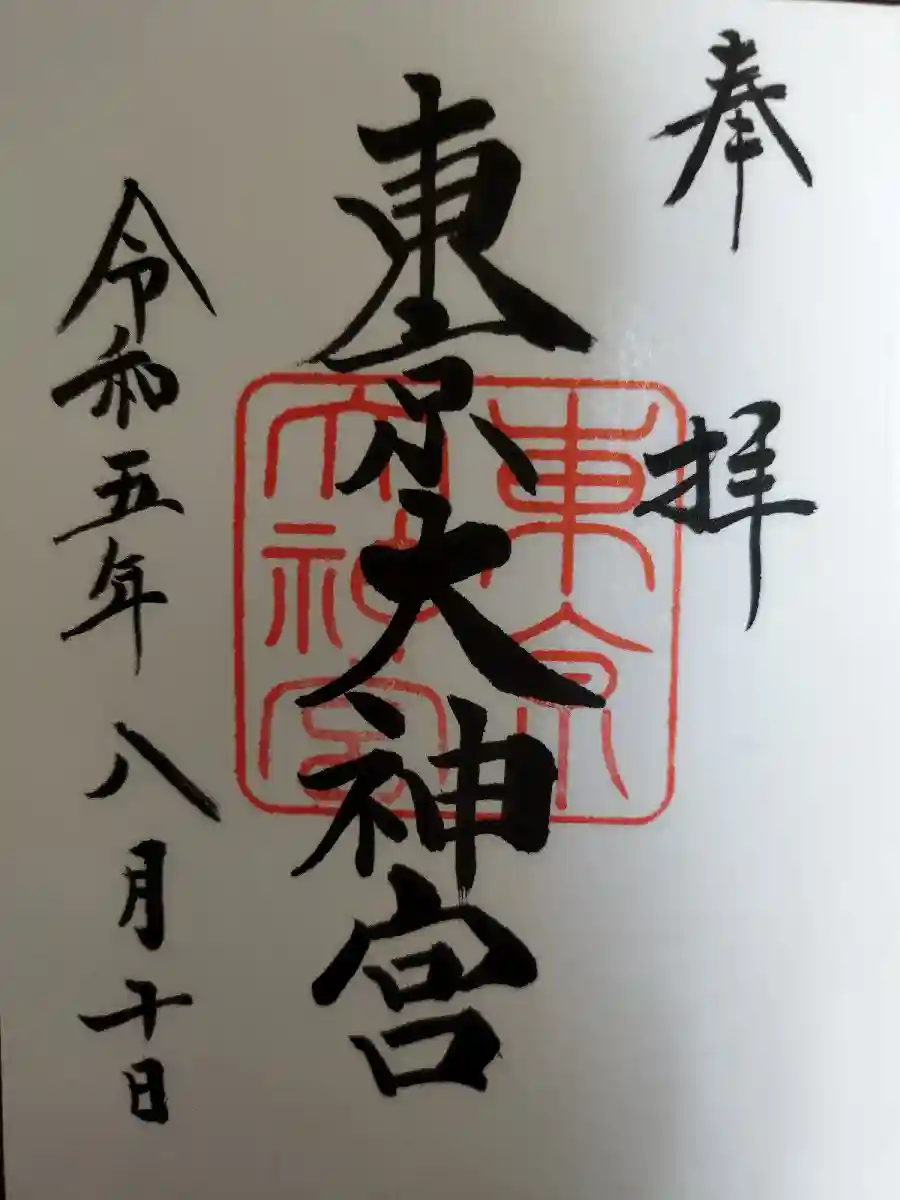 奉拝
東京大神宮
東京
大神宮
令和五年八月十日